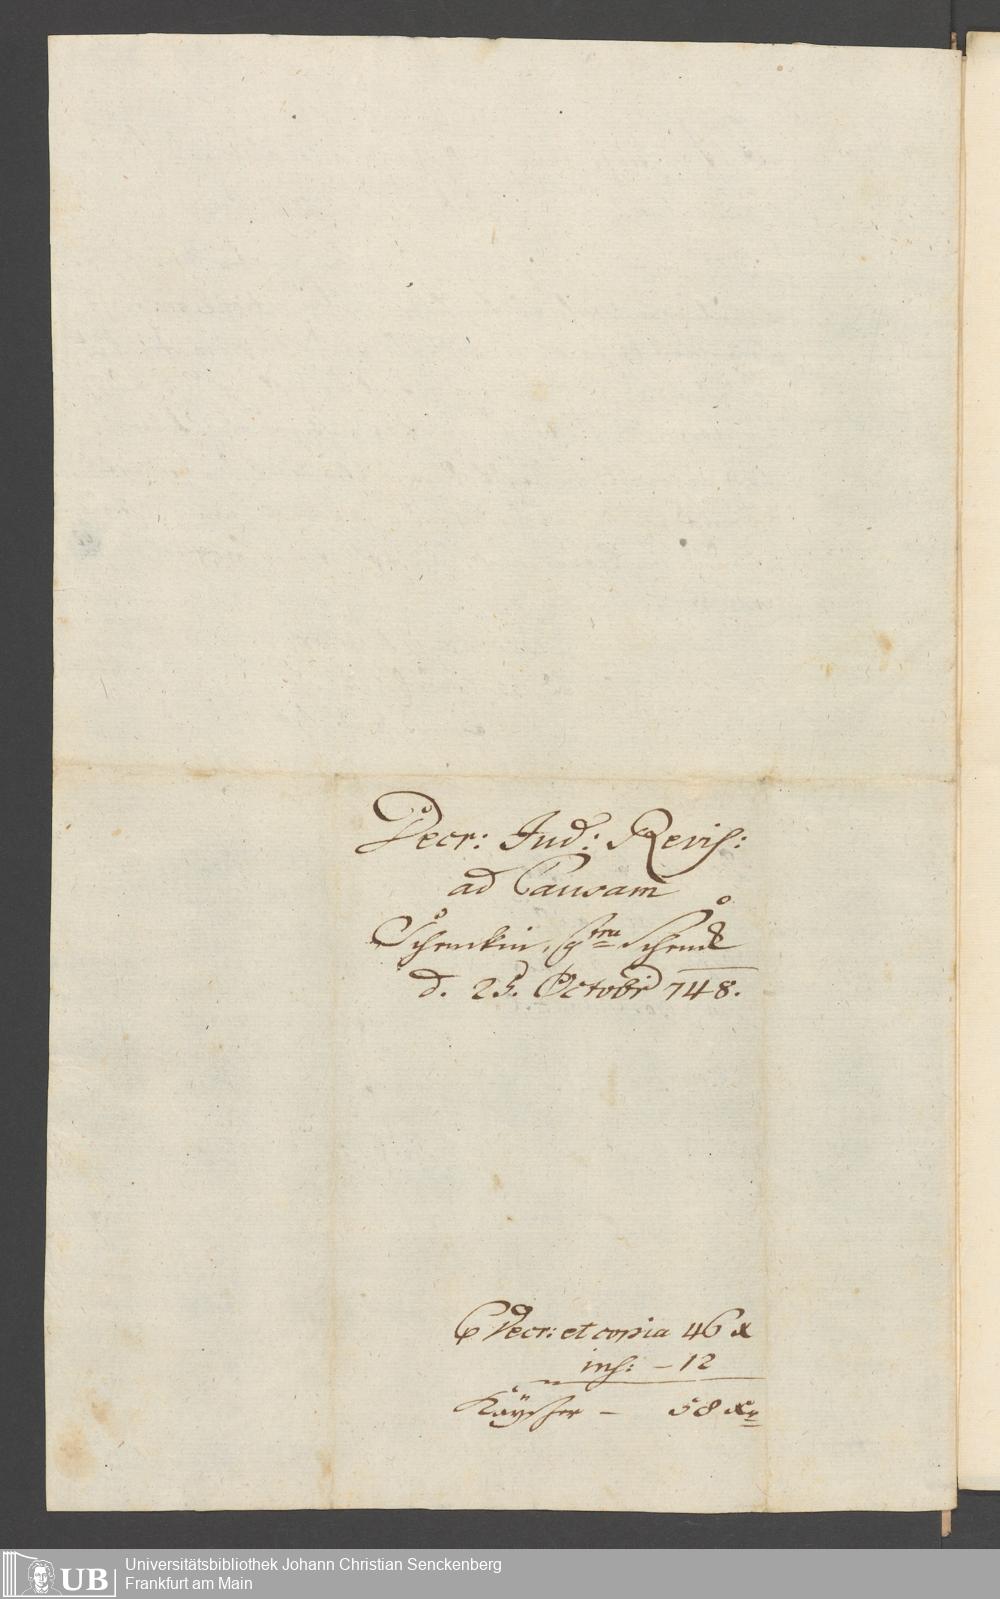 Decr: Jud: Revis:
ad Causam
Schenckin, ctra Schenck
d. 25. Octobr 748.
Decr: et copia 46 x
ins: - 12
Kayser - 58 xr
UB
Universitätsbibliothek Johann Christian Senckenberg
Frankfurt am Main